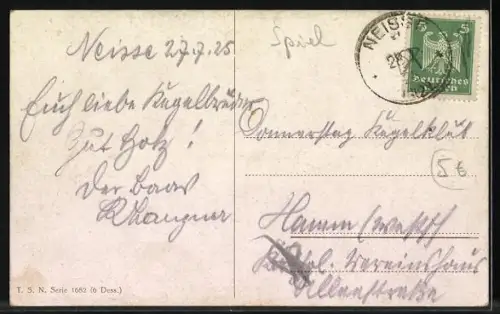 Neisse 27.7.25
Euch liebe Kegelbrüder
Gut Holz!
Der Baas
T. S. N. Serie 1682 (6 Dess.)
Spiel
NEISSE
5 5
Deutsches
Donnerstag Kegelklub
5€
Hamm (Westf)
Vereinshaus